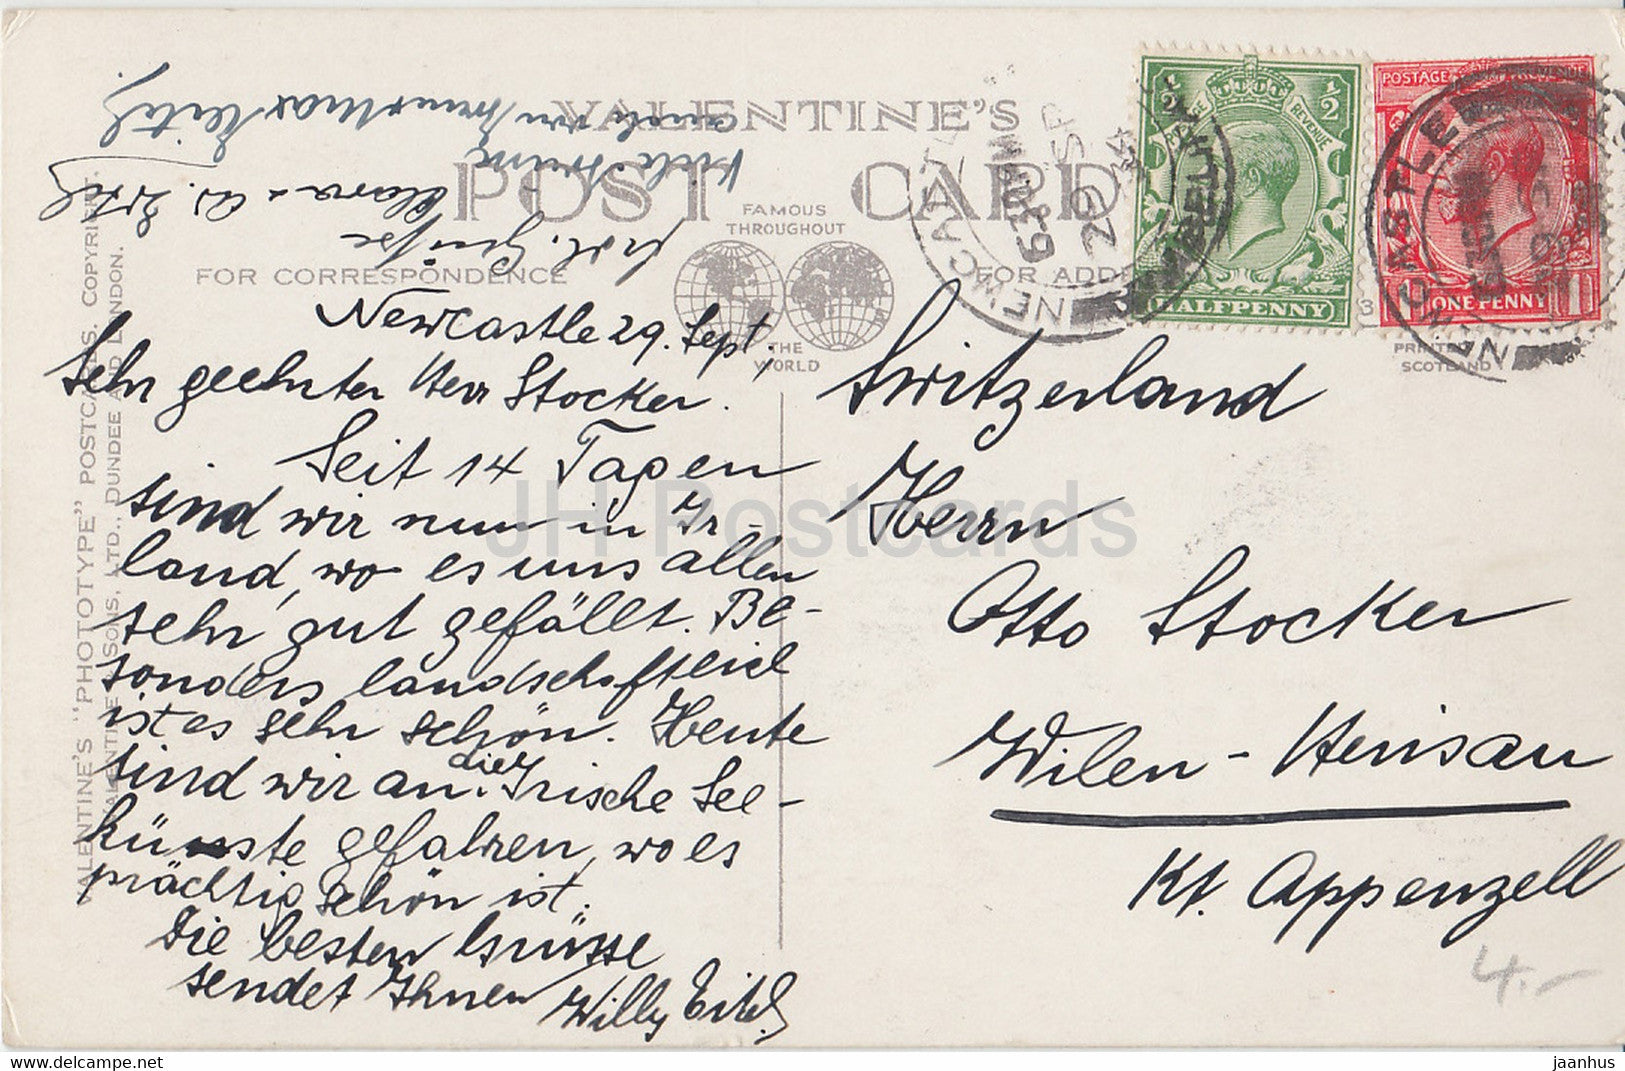 VALENTINE'S
POST CARD
FAMOUS
THROUGHOUT
THE
WORLD
FOR CORRESPONDENCE
FOR ADD
VALENTINE'S "PHOTOTYPE" POSTCARDS. COPYRIGHT.
VALENTINE & SONS, LTD., DUNDEE AND LONDON.
PRINTED
SCOTLAND
NEWCASTLE
6 30 PM
29 SP
34
½ ½
POSTAGE REVENUE
HALFPENNY
POSTAGE REVENUE
ONE PENNY
NEWCASTLE
Newcastle 29. Sept.
Sehr geehrter Herr Stocker.
Seit 14 Tagen
sind wir nun in Ir-
land, wo es uns allen
sehr gut gefällt. Be-
sonders landschaftlich
ist es sehr schön. Heute
sind wir an die Irische See-
küste gefahren, wo es
prächtig schön ist.
Die besten Grüsse
sendet Ihnen Willy
Grüsse
Clara
Switzerland
Herrn
Otto Stocker
Wilen - Herisau
Kt. Appenzell
4.-
JH Postcards
www.delcampe.net
jaanhus